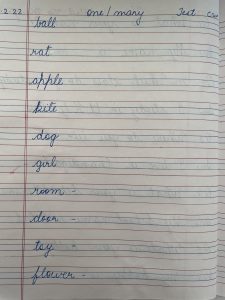 2.22 one/many Test CW
ball
rat
apple
kite
dog
girl
room -
door -
toy -
flower -